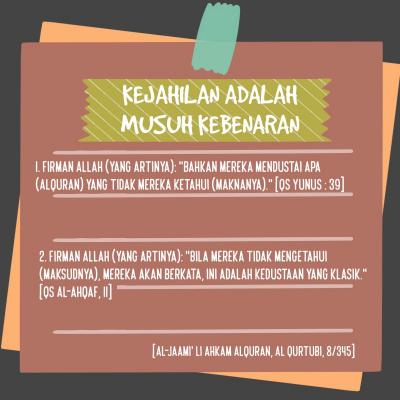 KEJAHILAN ADALAH
MUSUH KEBENARAN
1. FIRMAN ALLAH (YANG ARTINYA): "BAHKAN MEREKA MENDUSTAI APA
(ALQURAN) YANG TIDAK MEREKA KETAHUI (MAKNANYA)." [QS YUNUS : 39]
2. FIRMAN ALLAH (YANG ARTINYA): "BILA MEREKA TIDAK MENGETAHUI
(MAKSUDNYA), MEREKA AKAN BERKATA, INI ADALAH KEDUSTAAN YANG KLASIK."
[QS AL-AHQAF, 11]
[AL-JAAMI' LI AHKAM ALQURAN, AL QURTUBI, 8/345]